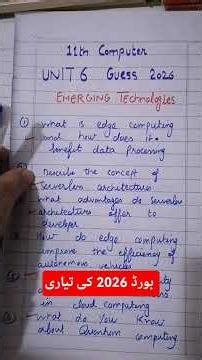 11th Computer
UNIT 6 Guess 2026
EMERGING Technologies
① what is edge computing
and how does it
benefit data processing
Describe the concept of
serverless architecture
what advantages do serverless
architecture offer to
developer
How do edge computing
improve the efficiency of
autonomous vehicles
بورڈ 2026 کی تیاری
in cloud computing
what do you know
about Quantum computing